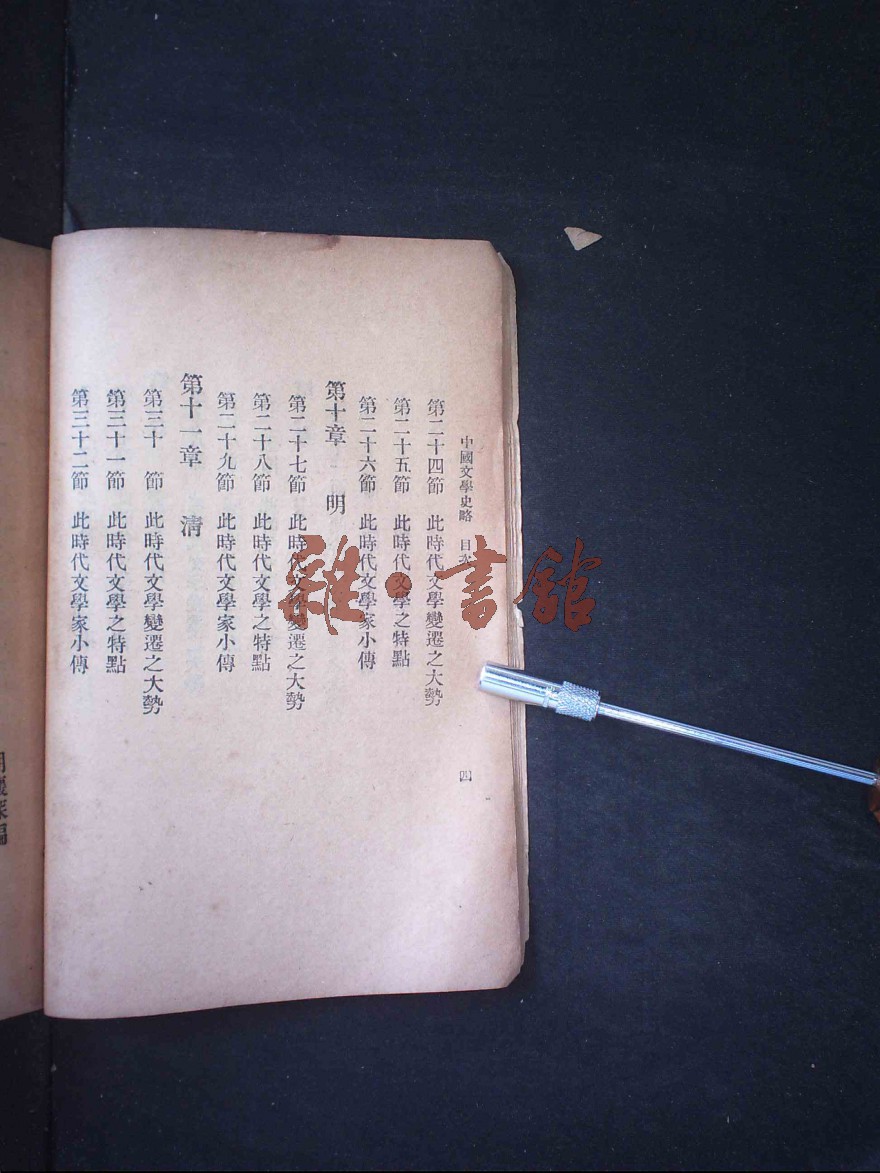 中國文學史略 目次 四
第二十四節 此時代文學變遷之大勢
第二十五節 此時代文學之特點
第二十六節 此時代文學家小傳
第十章 明
第二十七節 此時代文學變遷之大勢
第二十八節 此時代文學之特點
第二十九節 此時代文學家小傳
第十一章 清
第三十 節 此時代文學變遷之大勢
第三十一節 此時代文學之特點
第三十二節 此時代文學家小傳
雜·書館